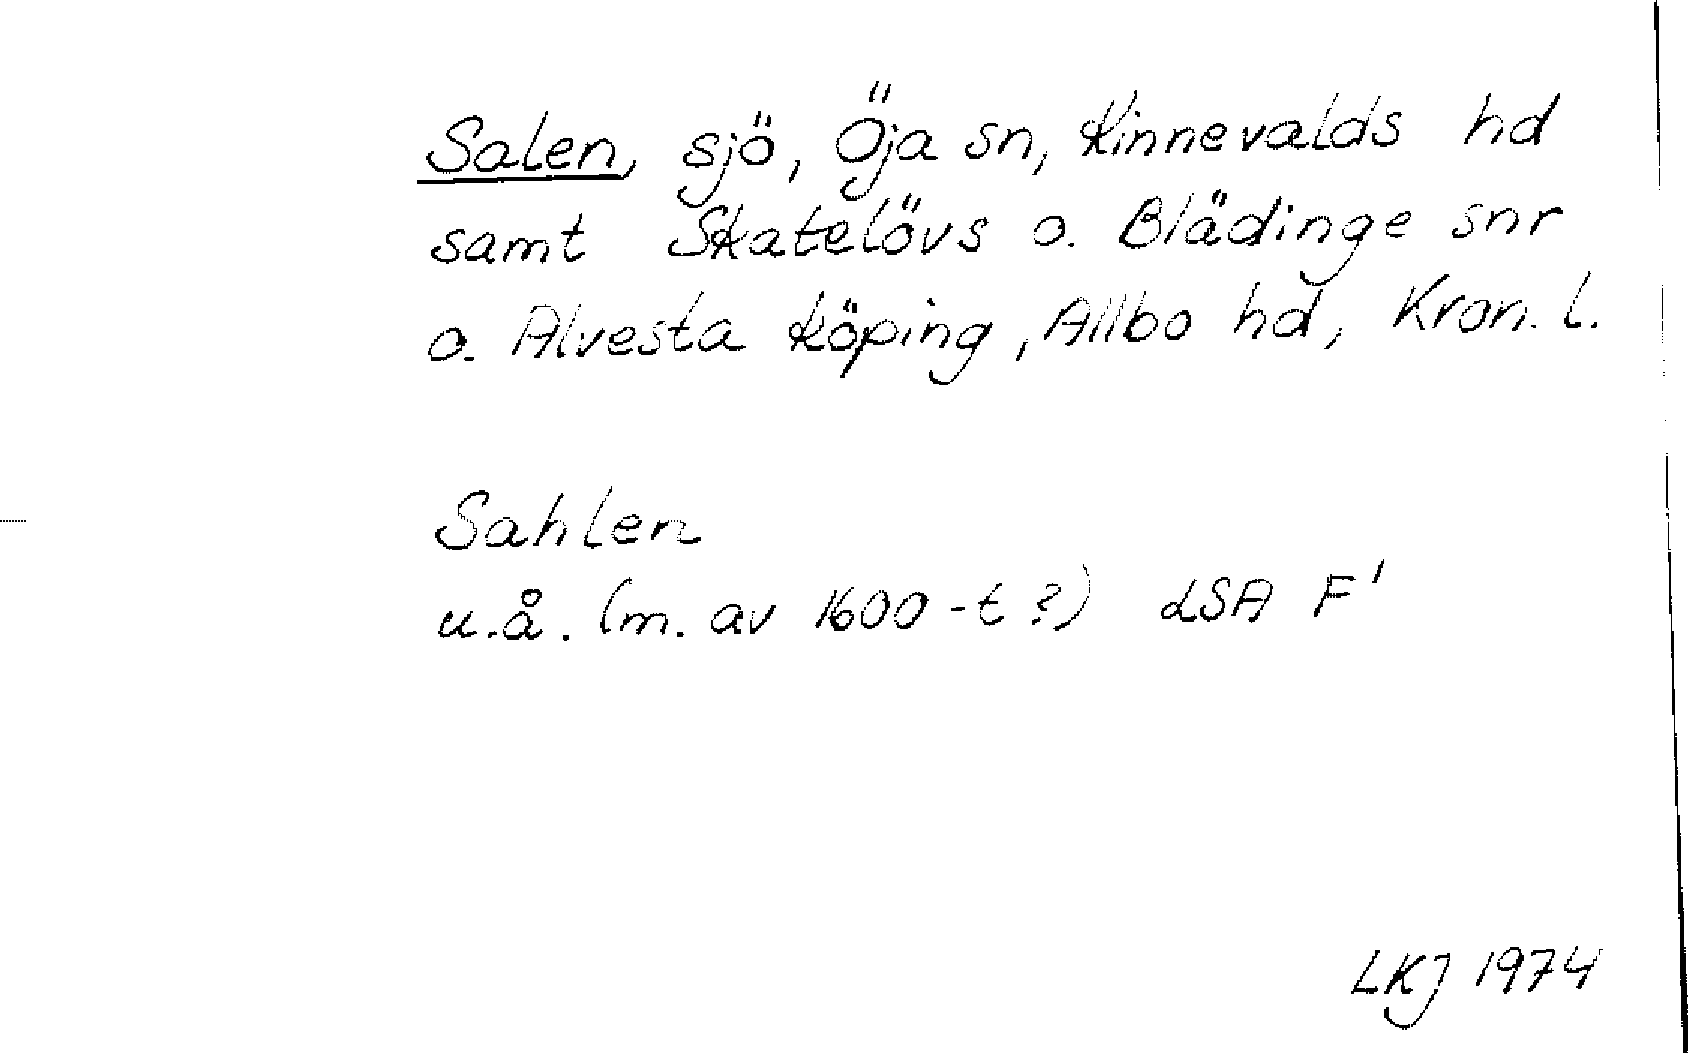 Salen, sjö, Öja sn, Kinnevalds hd
samt Skatelövs o. Blädinge snr
o. Alvesta köping, Allbo hd, Kron. l.
Sahlen
u.å. (m. av 1600-t?) LSA F'
LKJ 1974